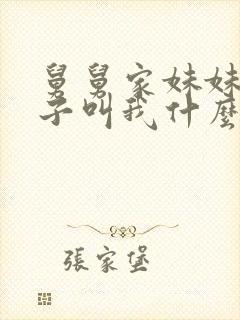 舅舅家妹妹
子叫我什麼
張家堡